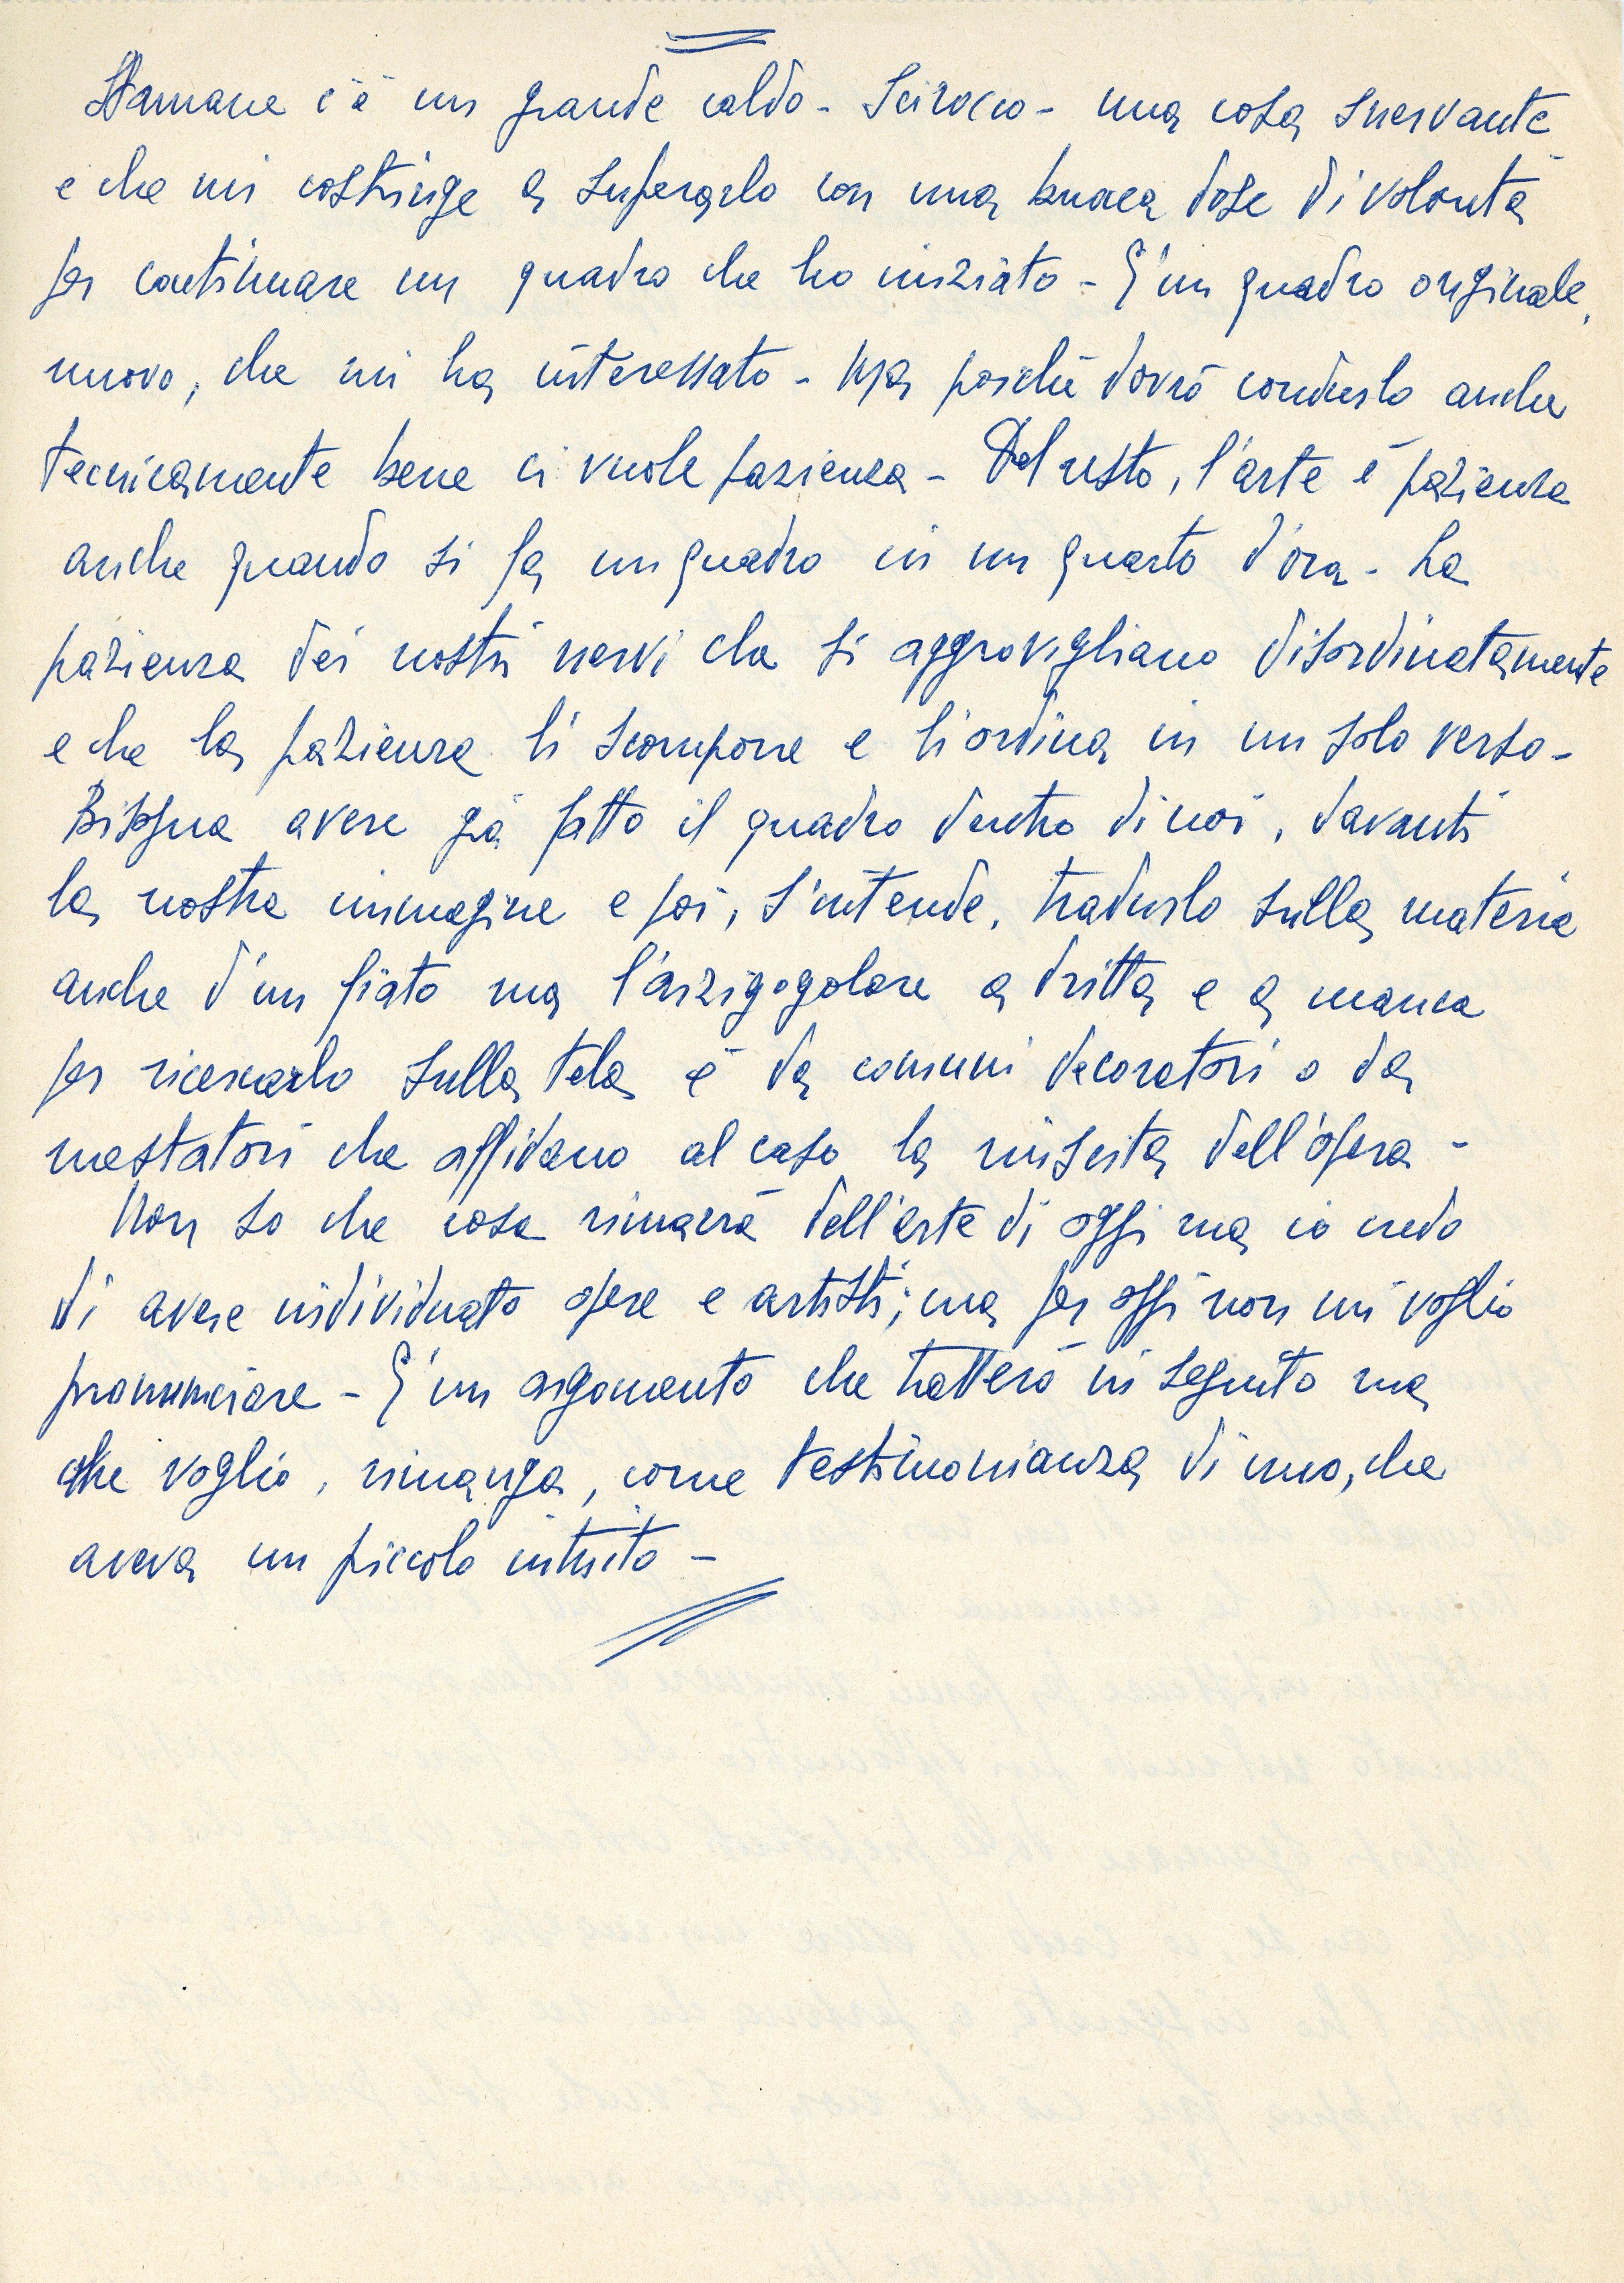 Stamane c'è un grande caldo - Scirocco - una cosa snervante
e che mi costringe a superarlo con una buona dose di volontà
per continuare un quadro che ho iniziato - E' un quadro originale,
nuovo, che mi ha interessato - Ma poiché dovrò condurlo anche
tecnicamente bene ci vuole pazienza - Del resto, l'arte è pazienza
anche quando si fa un quadro in un quarto d'ora - La
pazienza dei nostri nervi che si aggrovigliano disordinatamente
e che la pazienza li scompone e li ordina in un solo verso -
Bisogna avere già fatto il quadro dentro di noi, davanti
la nostra immagine e poi, s'intende, tradurlo sulla materia
anche d'un fiato ma l'arzigogolare a dritta e a manca
per ricercarlo sulla tela è da comuni decoratori o da
mestatori che affidano al caso la riuscita dell'opera -
Non so che cosa rimarrà dell'arte di oggi ma io credo
di avere individuato opere e artisti; ma per oggi non mi voglio
pronunciare - E' un argomento che tratterò in seguito ma
che voglio, rimanga, come testimonianza di uno, che
aveva un piccolo intuito -